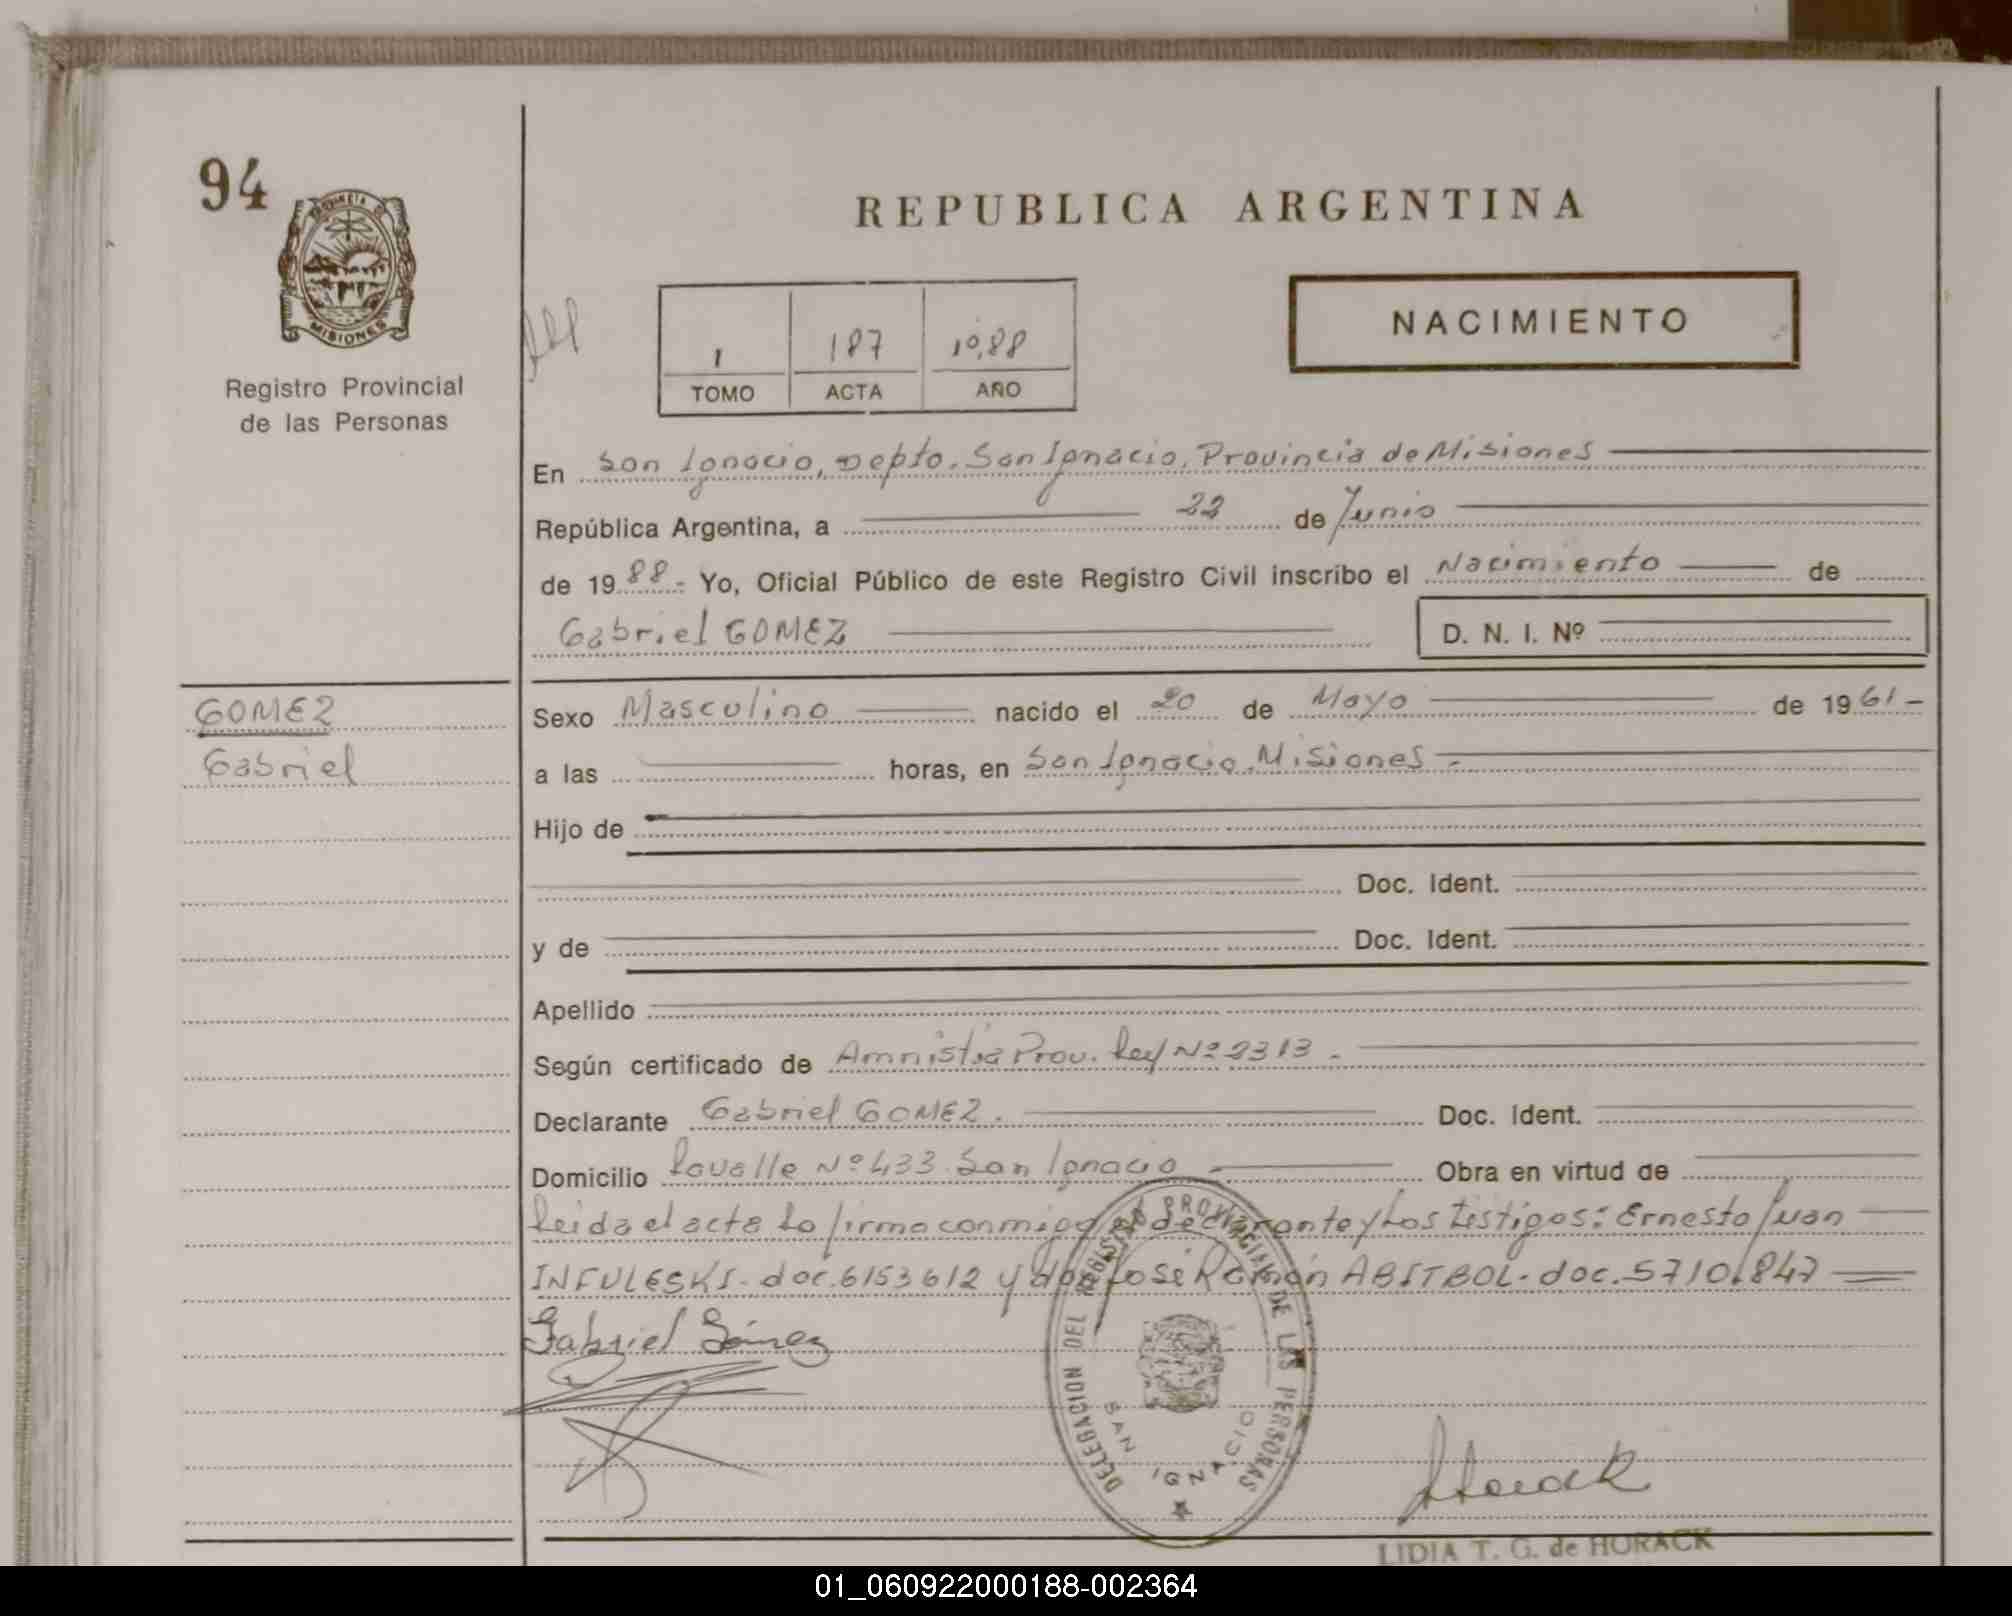 94
PROVINCIA DE
MISIONES
Registro Provincial
de las Personas
REPUBLICA ARGENTINA
1 187 1988
TOMO ACTA AÑO
NACIMIENTO
En San Ignacio, Depto. San Ignacio, Provincia de Misiones
República Argentina, a 22 de Junio
de 1988.- Yo, Oficial Público de este Registro Civil inscribo el Nacimiento de
Gabriel GOMEZ D. N. I. Nº
GOMEZ
Gabriel
Sexo Masculino nacido el 20 de Mayo de 1961-
a las horas, en San Ignacio, Misiones.-
Hijo de
Doc. Ident.
y de Doc. Ident.
Apellido
Según certificado de Amnistia Prov. Ley Nº 2313.-
Declarante Gabriel GOMEZ. Doc. Ident.
Domicilio Lavalle Nº 433 San Ignacio Obra en virtud de
Leida el acta la firma conmigo el declarante y los testigos: Ernesto Juan
INFULESKI- doc. 6153612 y don José Ramón ABITBOL- doc. 5710.847
Gabriel Gómez
DELEGACION DEL REGISTRO PROVINCIAL DE LAS PERSONAS
SAN IGNACIO
Horack
LIDIA T. G. de HORACK
01_060922000188-002364